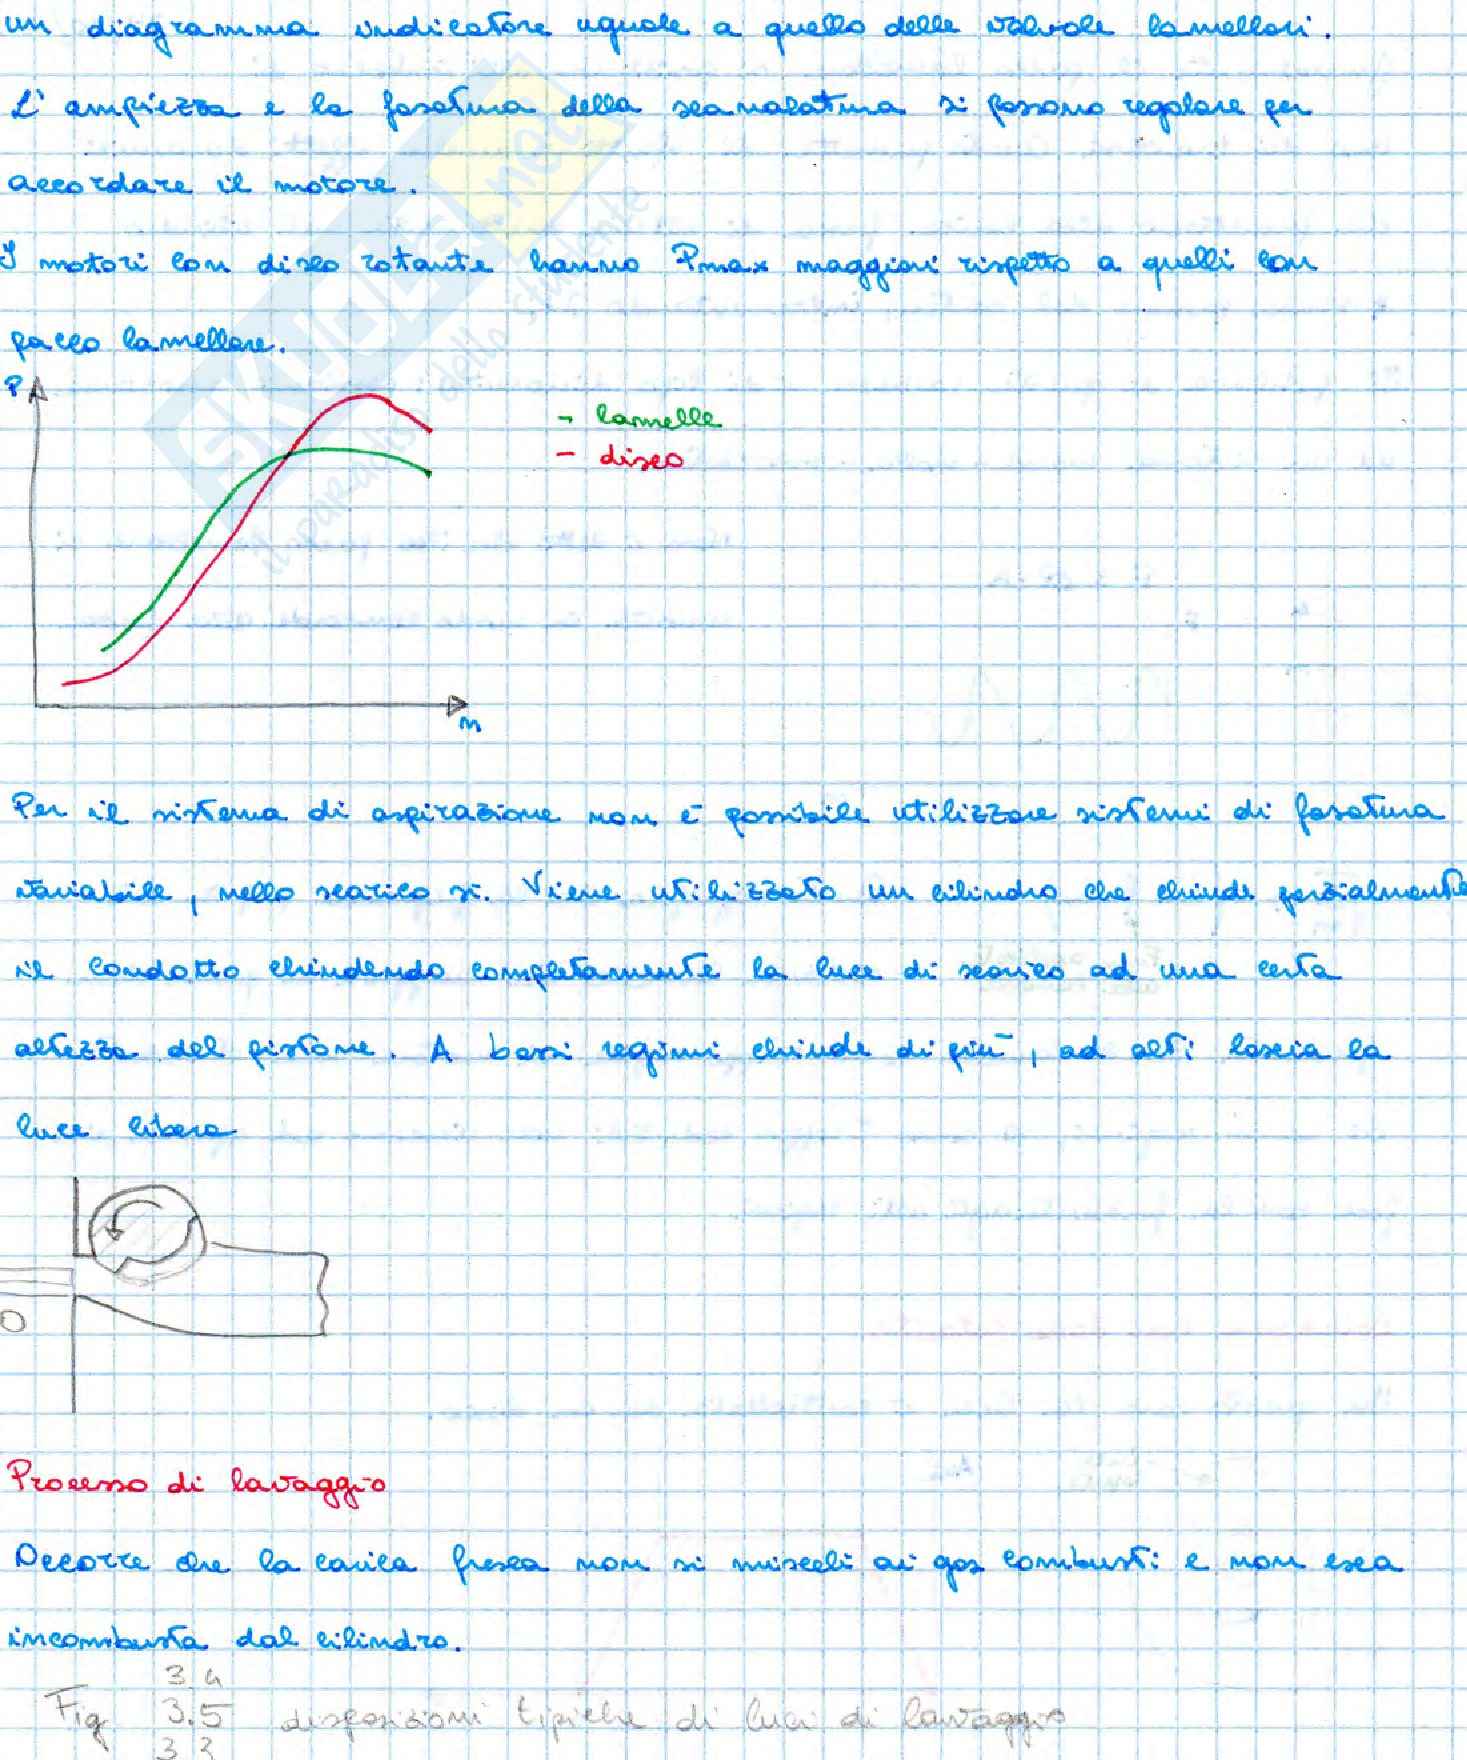 un diagramma indicatore uguale a quello delle valvole lamellari.
L'ampiezza e la fasatura della scanalatura si possono regolare per
accordare il motore.
I motori con disco rotante hanno Pmax maggiori rispetto a quelli con
pacco lamellare.
P
- lamelle
- disco
n
Per il sistema di aspirazione non è possibile utilizzare sistemi di fasatura
variabile, nello scarico si. Viene utilizzato un cilindro che chiude parzialmente
il condotto chiudendo completamente la luce di scarico ad una certa
altezza del pistone. A bassi regimi chiude di più, ad alti lascia la
luce libera
Processo di lavaggio
Occorre che la carica fresca non si misceli ai gas combusti e non esca
incombusta dal cilindro.
3.4
Fig 3.5 disposizioni tipiche di luci di lavaggio
3.3
SKUOLA.net
il paradiso dello studente